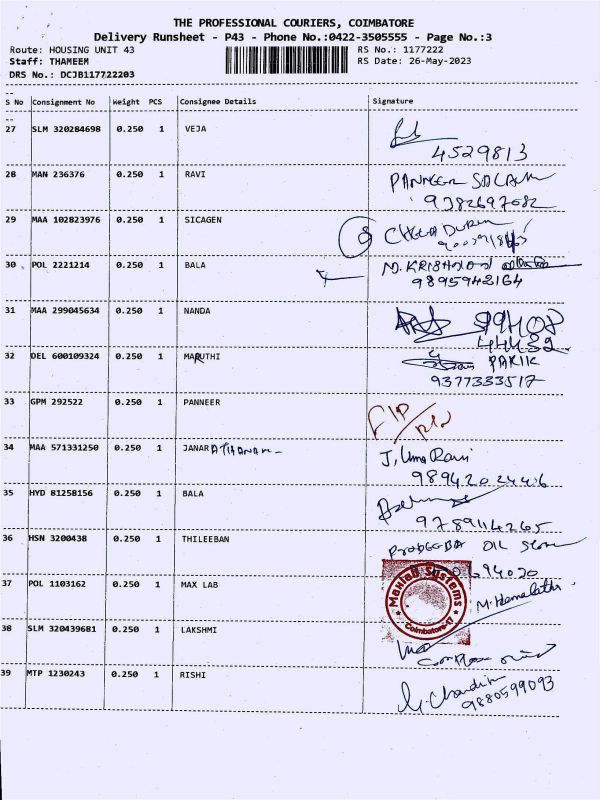 THE PROFESSIONAL COURIERS, COIMBATORE
Delivery Runsheet - P43 - Phone No.:0422-3505555 - Page No.:3
Route: HOUSING UNIT 43 RS No.: 1177222
Staff: THAMEEM RS Date: 26-May-2023
DRS No.: DCJB117722203
S No Consignment No Weight PCS Consignee Details Signature
27 SLM 320284698 0.250 1 VEJA
4529813
28 MAN 236376 0.250 1 RAVI
9382697682
29 MAA 102823976 0.250 1 SICAGEN
30 POL 2221214 0.250 1 BALA
9895942164
31 MAA 299045634 0.250 1 NANDA
32 DEL 600109324 0.250 1 MARUTHI
9377333517
33 GPM 292522 0.250 1 PANNEER
34 MAA 571331250 0.250 1 JANARATHANAN J, Uma Rani
35 HYD 81258156 0.250 1 BALA
9789114265
36 HSN 3200438 0.250 1 THILEEBAN
37 POL 1103162 0.250 1 MAX LAB
Maxlab Systems
Coimbatore-17
M. Hemalatha
38 SLM 320439681 0.250 1 LAKSHMI
39 MTP 1230243 0.250 1 RISHI
9880599093